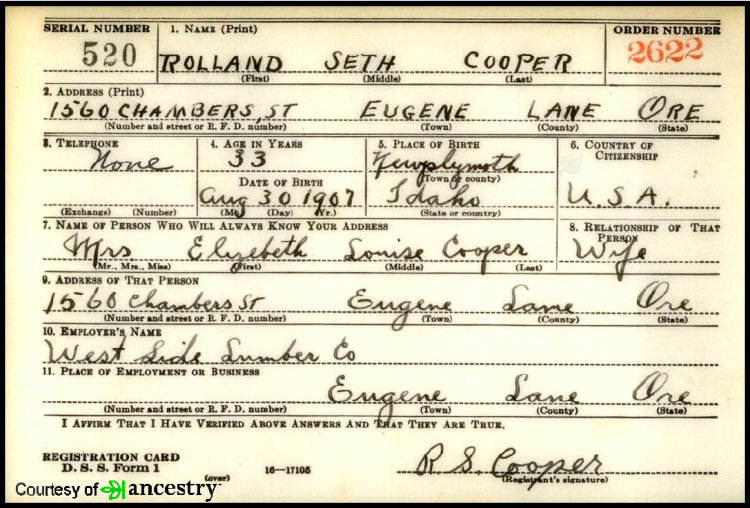 SERIAL NUMBER
1. NAME (Print)
ORDER NUMBER
520
ROLLAND SETH COOPER
2622
(First) (Middle) (Last)
2. ADDRESS (Print)
1560 CHAMBERS, ST EUGENE LANE ORE
(Number and street or R. F. D. number) (Town) (County) (State)
3. TELEPHONE
None
(Exchange) (Number)
4. AGE IN YEARS
33
DATE OF BIRTH
Aug 30 1907
(Mo.) (Day) (Yr.)
5. PLACE OF BIRTH
Newplymoth
(Town or county)
Idaho
(State or country)
6. COUNTRY OF
CITIZENSHIP
U.S.A.
7. NAME OF PERSON WHO WILL ALWAYS KNOW YOUR ADDRESS
Mrs. Elyzebeth Louise Cooper
(Mr., Mrs., Miss) (First) (Middle) (Last)
8. RELATIONSHIP OF THAT
PERSON
Wife
9. ADDRESS OF THAT PERSON
1560 Chambers St Eugene Lane Ore
(Number and street or R. F. D. number) (Town) (County) (State)
10. EMPLOYER'S NAME
West Side Lumber Co
11. PLACE OF EMPLOYMENT OR BUSINESS
Eugene Lane Ore
(Number and street or R. F. D. number) (Town) (County) (State)
I AFFIRM THAT I HAVE VERIFIED ABOVE ANSWERS AND THAT THEY ARE TRUE.
REGISTRATION CARD
D. S. S. Form 1
(over)
16—17105
R S. Cooper
(Registrant's signature)
Courtesy of ancestry